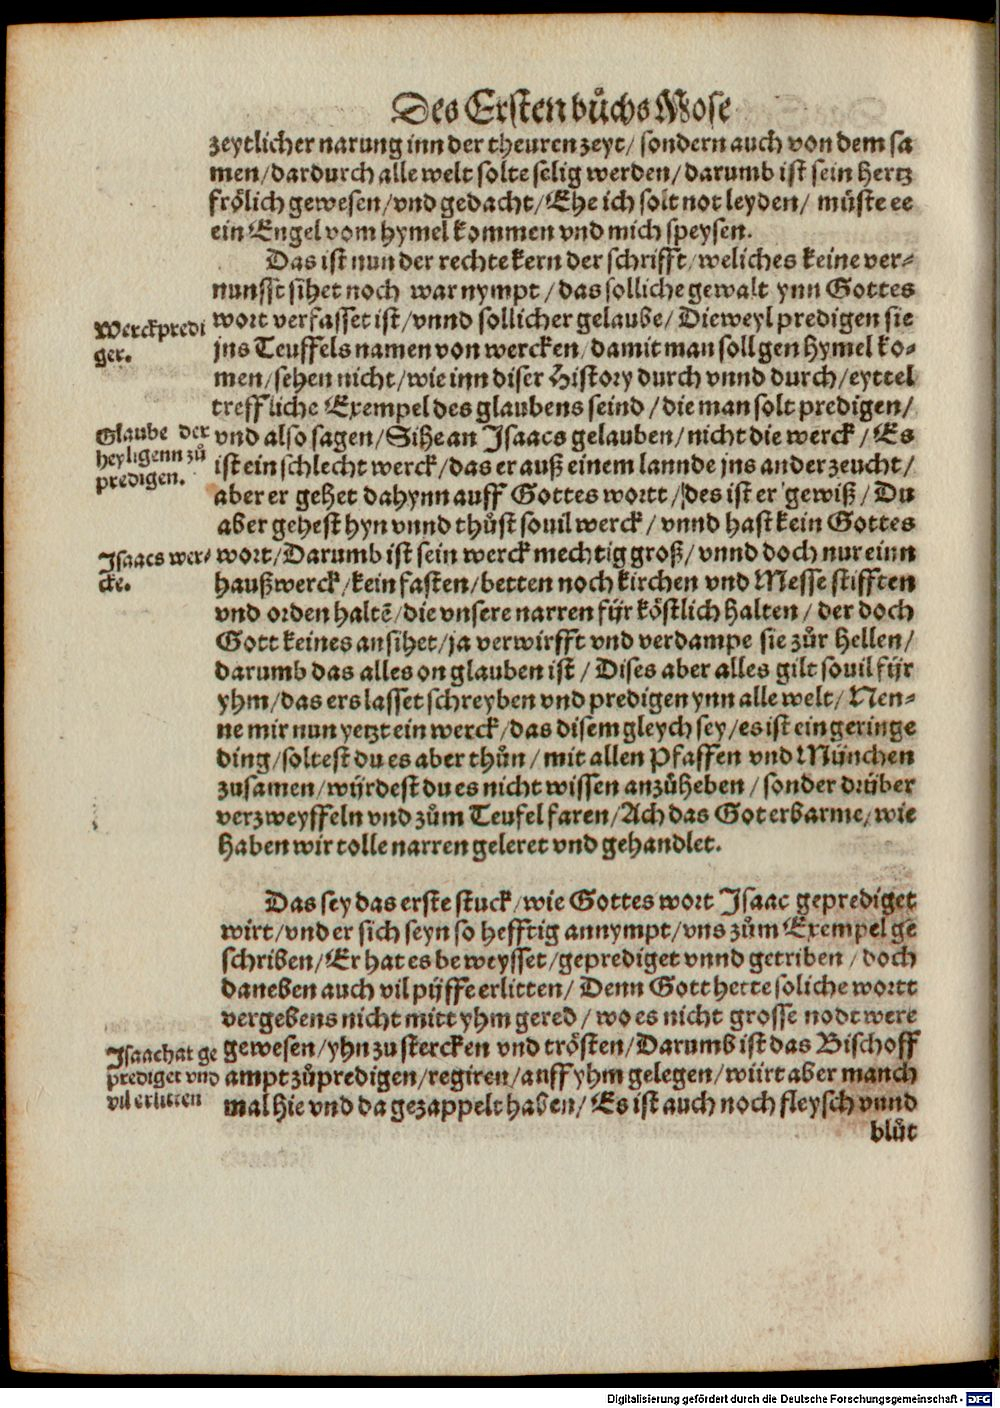 Des Ersten bůchs Mose
zeytlicher narung inn der theuren zeyt/ sondern auch von dem sa
men/dardurch alle welt solte selig werden/darumb ist sein hertz
frölich gewesen/vnd gedacht/Ehe ich solt not leyden/ müste ee
ein Engel vom hymel kommen vnd mich speysen.
Das ist nun der rechte kern der schrifft/weliches keine ver-
nunfft sihet noch war nympt/das solliche gewalt ynn Gottes
Werckpredi
ger.
wort verfasset ist/vnnd sollicher gelaube/Dieweyl predigen sie
jns Teuffels namen von wercken/damit man soll gen hymel ko-
men/sehen nicht/wie inn diser History durch vnnd durch/eyttel
treffliche Exempel des glaubens seind/die man solt predigen/
Glaube der
heyligenn zů
predigen.
vnd also sagen/Sihe an Isaacs gelauben/nicht die werck/Es
ist ein schlecht werck/das er auß einem lannde jns ander zeucht/
aber er gehet dahynn auff Gottes wortt/des ist er gewiß/Du
aber gehest hyn vnnd thůst souil werck/vnnd hast kein Gottes
Isaacs wer-
cke.
wort/Darumb ist sein werck mechtig groß/vnnd doch nur einn
haußwerck/kein fasten/betten noch kirchen vnd Messe stifften
vnd orden haltē/die vnsere narren fÿr köstlich halten/der doch
Gott keines ansihet/ja verwirfft vnd verdampe sie zůr hellen/
darumb das alles on glauben ist/Dises aber alles gilt souil fÿr
yhm/das ers lasset schreyben vnd predigen ynn alle welt/Nen-
ne mir nun yetzt ein werck/das disem gleych sey/es ist ein geringe
ding/soltest du es aber thůn/mit allen Pfaffen vnd München
zusamen/wÿrdest du es nicht wissen anzůheben/sonder drÿber
verzweyffeln vnd zům Teufel faren/Ach das Got erbarme/wie
haben wir tolle narren geleret vnd gehandlet.
Das sey das erste stuck/wie Gottes wort Isaac geprediget
wirt/vnd er sich seyn so hefftig annympt/vns zům Exempel ge
schriben/Er hat es beweysset/geprediget vnnd getriben/doch
daneben auch vil pÿffe erlitten/Denn Gott hette soliche wortt
vergebens nicht mitt yhm gered/wo es nicht grosse nodt were
Isaac hat ge
prediget vnd
vil erlitten
gewesen/yhn zu stercken vnd trösten/Darumb ist das Bischoff
ampt zůpredigen/regiren/auff yhm gelegen/würt aber manch
mal hie vnd da gezappelt haben/Es ist auch noch fleysch vnnd
blůt
Digitalisierung gefördert durch die Deutsche Forschungsgemeinschaft - DFG